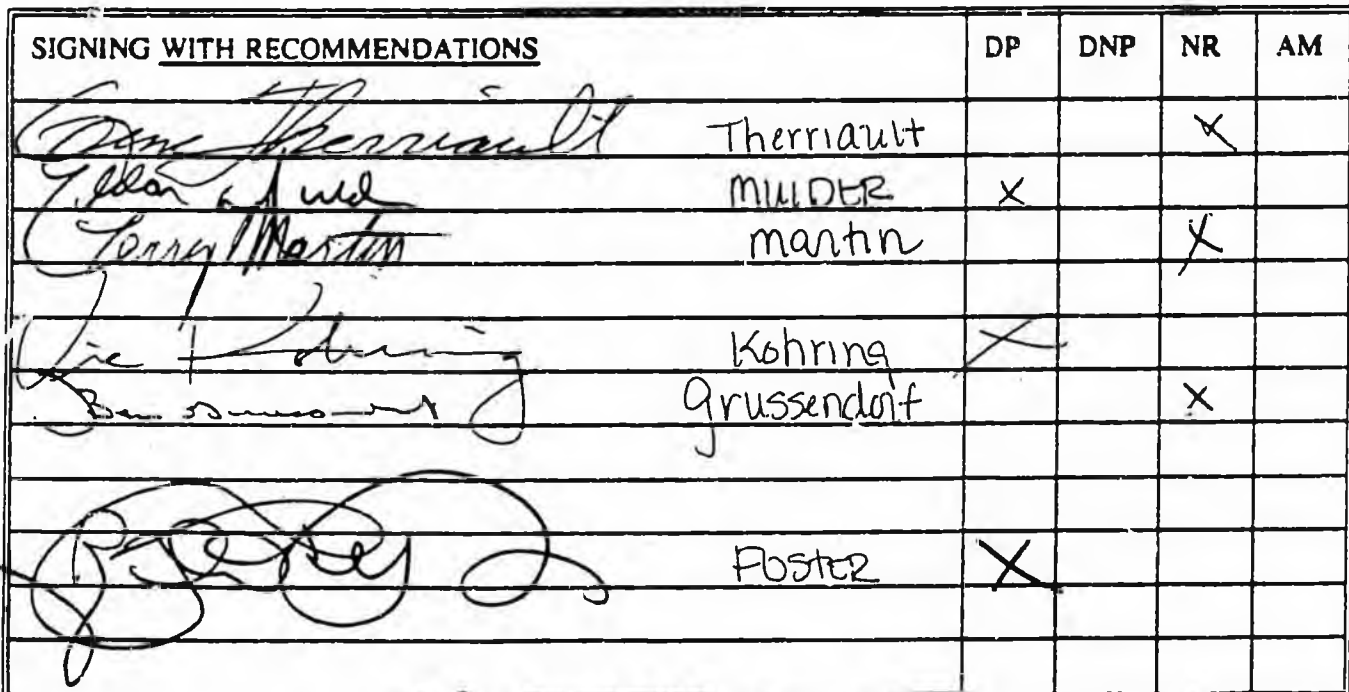 SIGNING WITH RECOMMENDATIONS DP DNP NR AM
Gene Therriault Therriault X
MulDER X
Terry Martin Martin X
Vic Kohring Kohring X
Ben Grussendorf X
FOSTER X